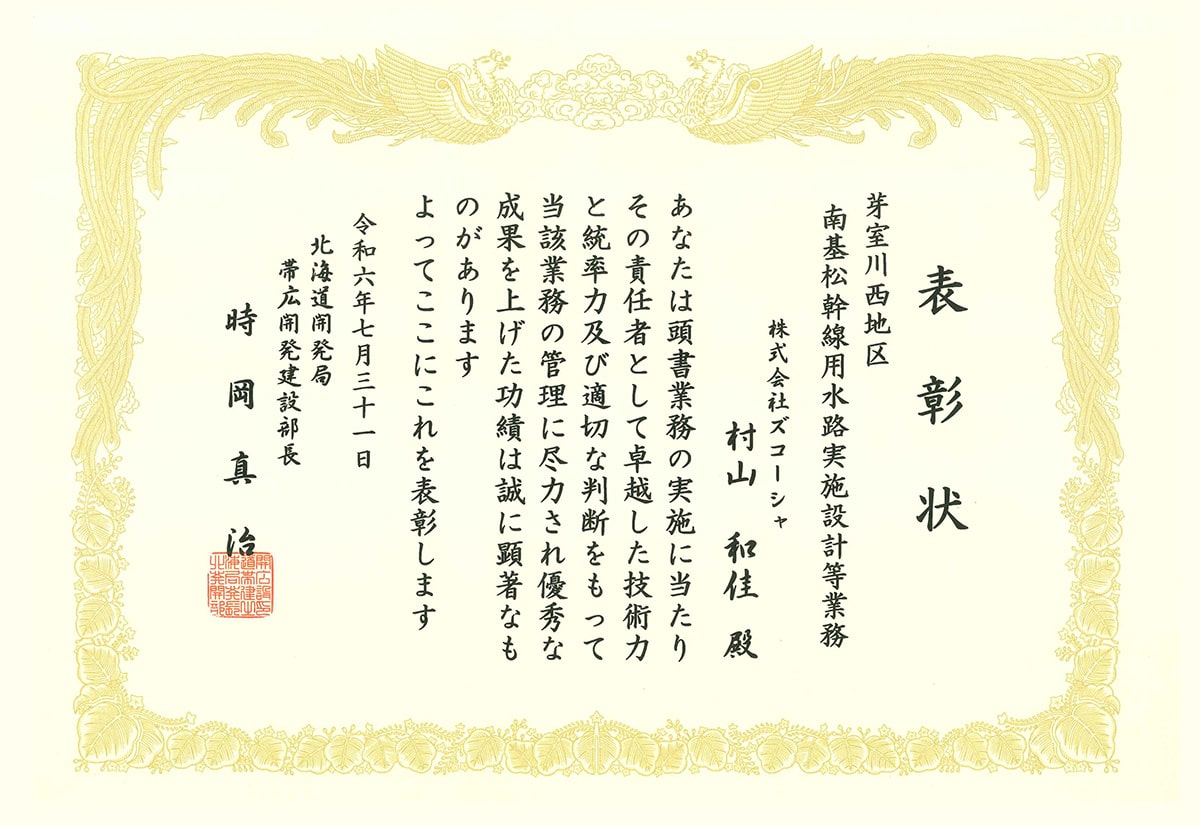 表彰状
芽室川西地区
南基松幹線用水路実施設計等業務
株式会社ズコーシャ
村山 和佳 殿
あなたは頭書業務の実施に当たり
その責任者として卓越した技術力
と統率力及び適切な判断をもって
当該業務の管理に尽力され優秀な
成果を上げた功績は誠に顕著なも
のがあります
よってここにこれを表彰します
令和六年七月三十一日
北海道開発局
帯広開発建設部長
時岡真治